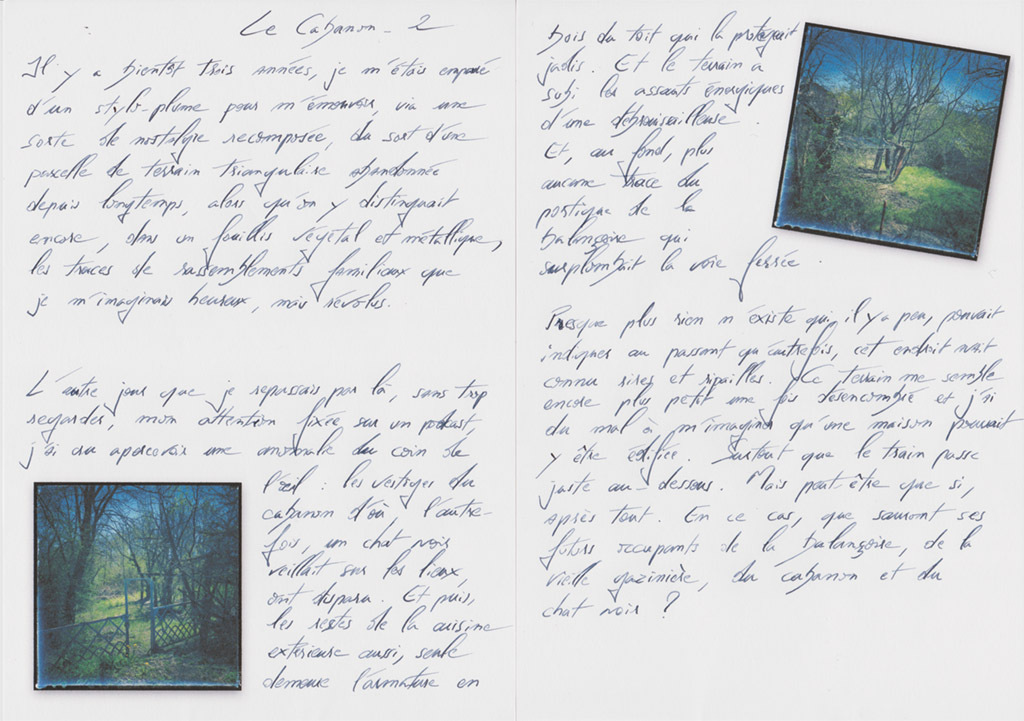 Le Cabanon - 2
Il y a bientôt trois années, je m'étais emparé
d'un stylo-plume pour m'émouvoir, via une
sorte de nostalgie recomposée, du sort d'une
parcelle de terrain triangulaire abandonnée
depuis longtemps, alors qu'on y distinguait
encore, dans un fouillis végétal et métallique,
les traces de rassemblements familiaux que
je m'imaginais heureux, mais révolus.
L'autre jour que je repassais par là, sans trop
regarder, mon attention fixée sur un podcast,
j'ai cru apercevoir une anomalie du coin de
l'œil : les vestiges du
cabanon d'où l'autre-
fois, un chat noir
veillait sur les lieux,
ont disparu. Et puis,
les restes de la cuisine
extérieure aussi, seule
demeure l'armature en
bois du toit qui la protégeait
jadis. Et le terrain a
subi les assauts énergiques
d'une débroussailleuse.
Et, au fond, plus
aucune trace du
portique de la
balançoire qui
surplombait la voie ferrée.
Presque plus rien n'existe qui, il y a peu, pouvait
indiquer au passant qu'autrefois, cet endroit avait
connu rires et ripailles. Ce terrain me semble
encore plus petit une fois désencombré et j'ai
du mal à m'imaginer qu'une maison pouvait
y être édifiée. Surtout que le train passe
juste au-dessous. Mais peut-être que si,
après tout. En ce cas, que sauront ses
futurs occupants de la balançoire, de la
vieille gazinière, du cabanon et du
chat noir ?